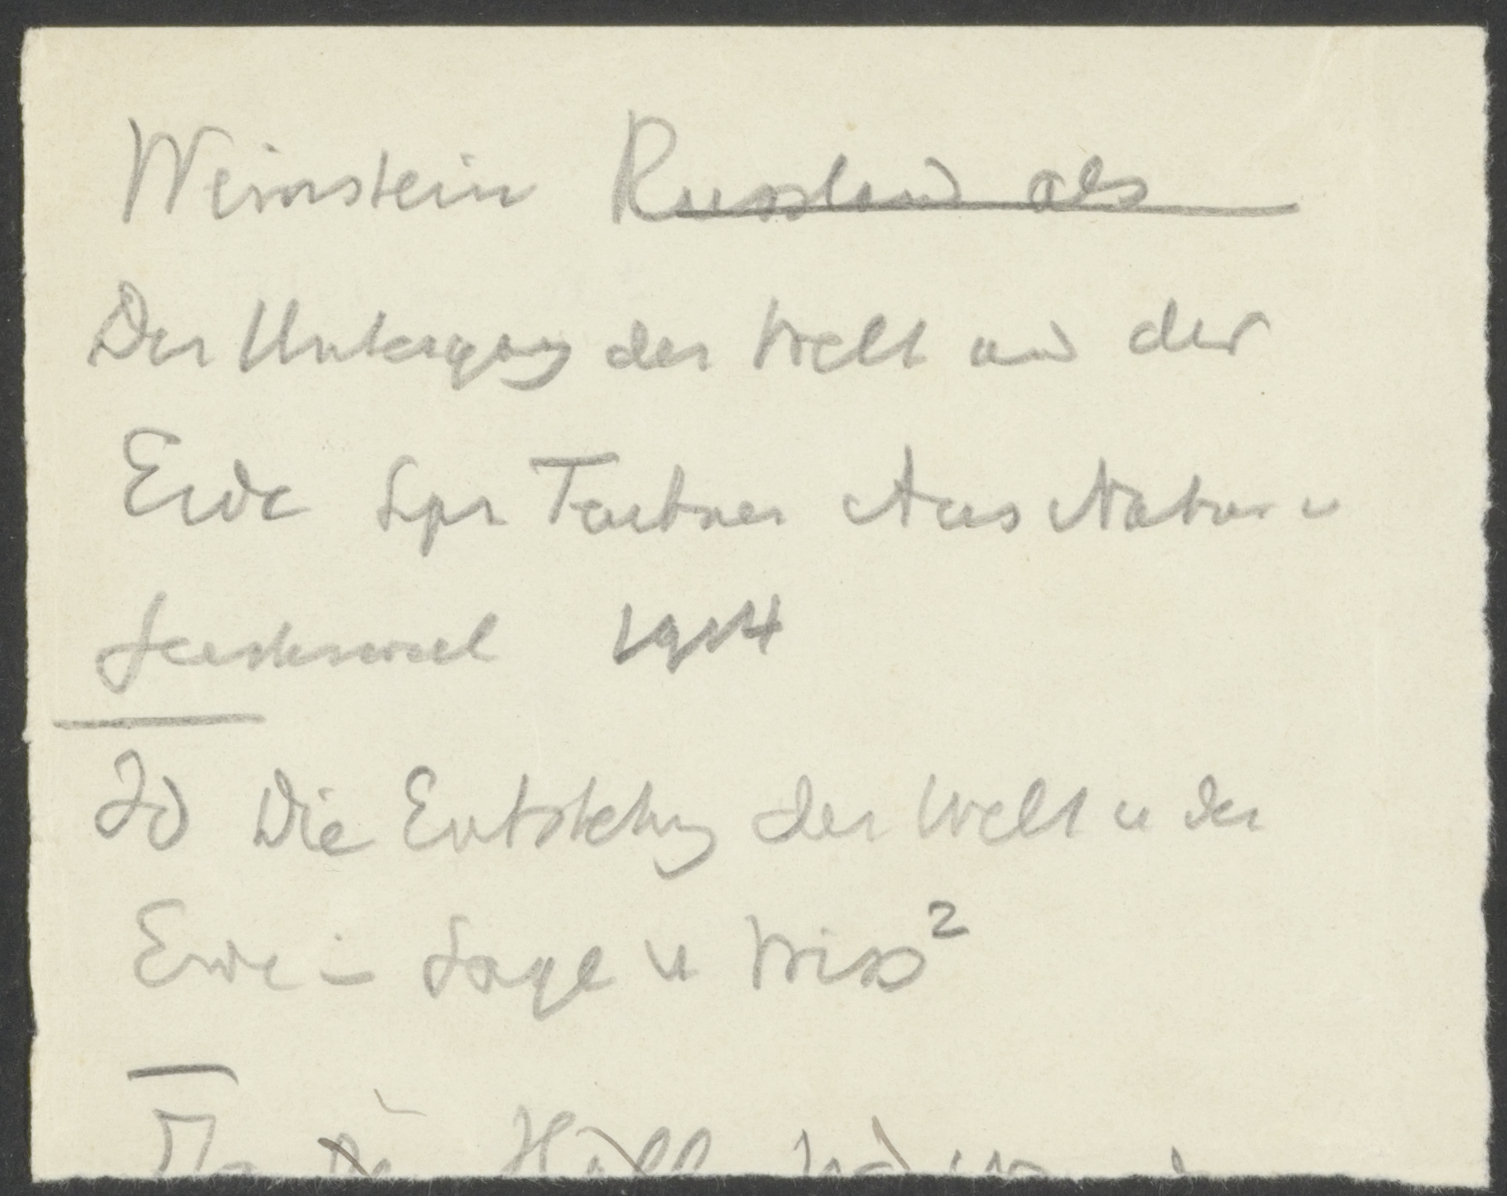 Weinstein Russland als
Der Untergang der Welt und der
Erde Lpz Teubner Aus Natur u
Geisteswelt 1914
Id Die Entstehung der Welt u der
Erde in Sage u Wiss²